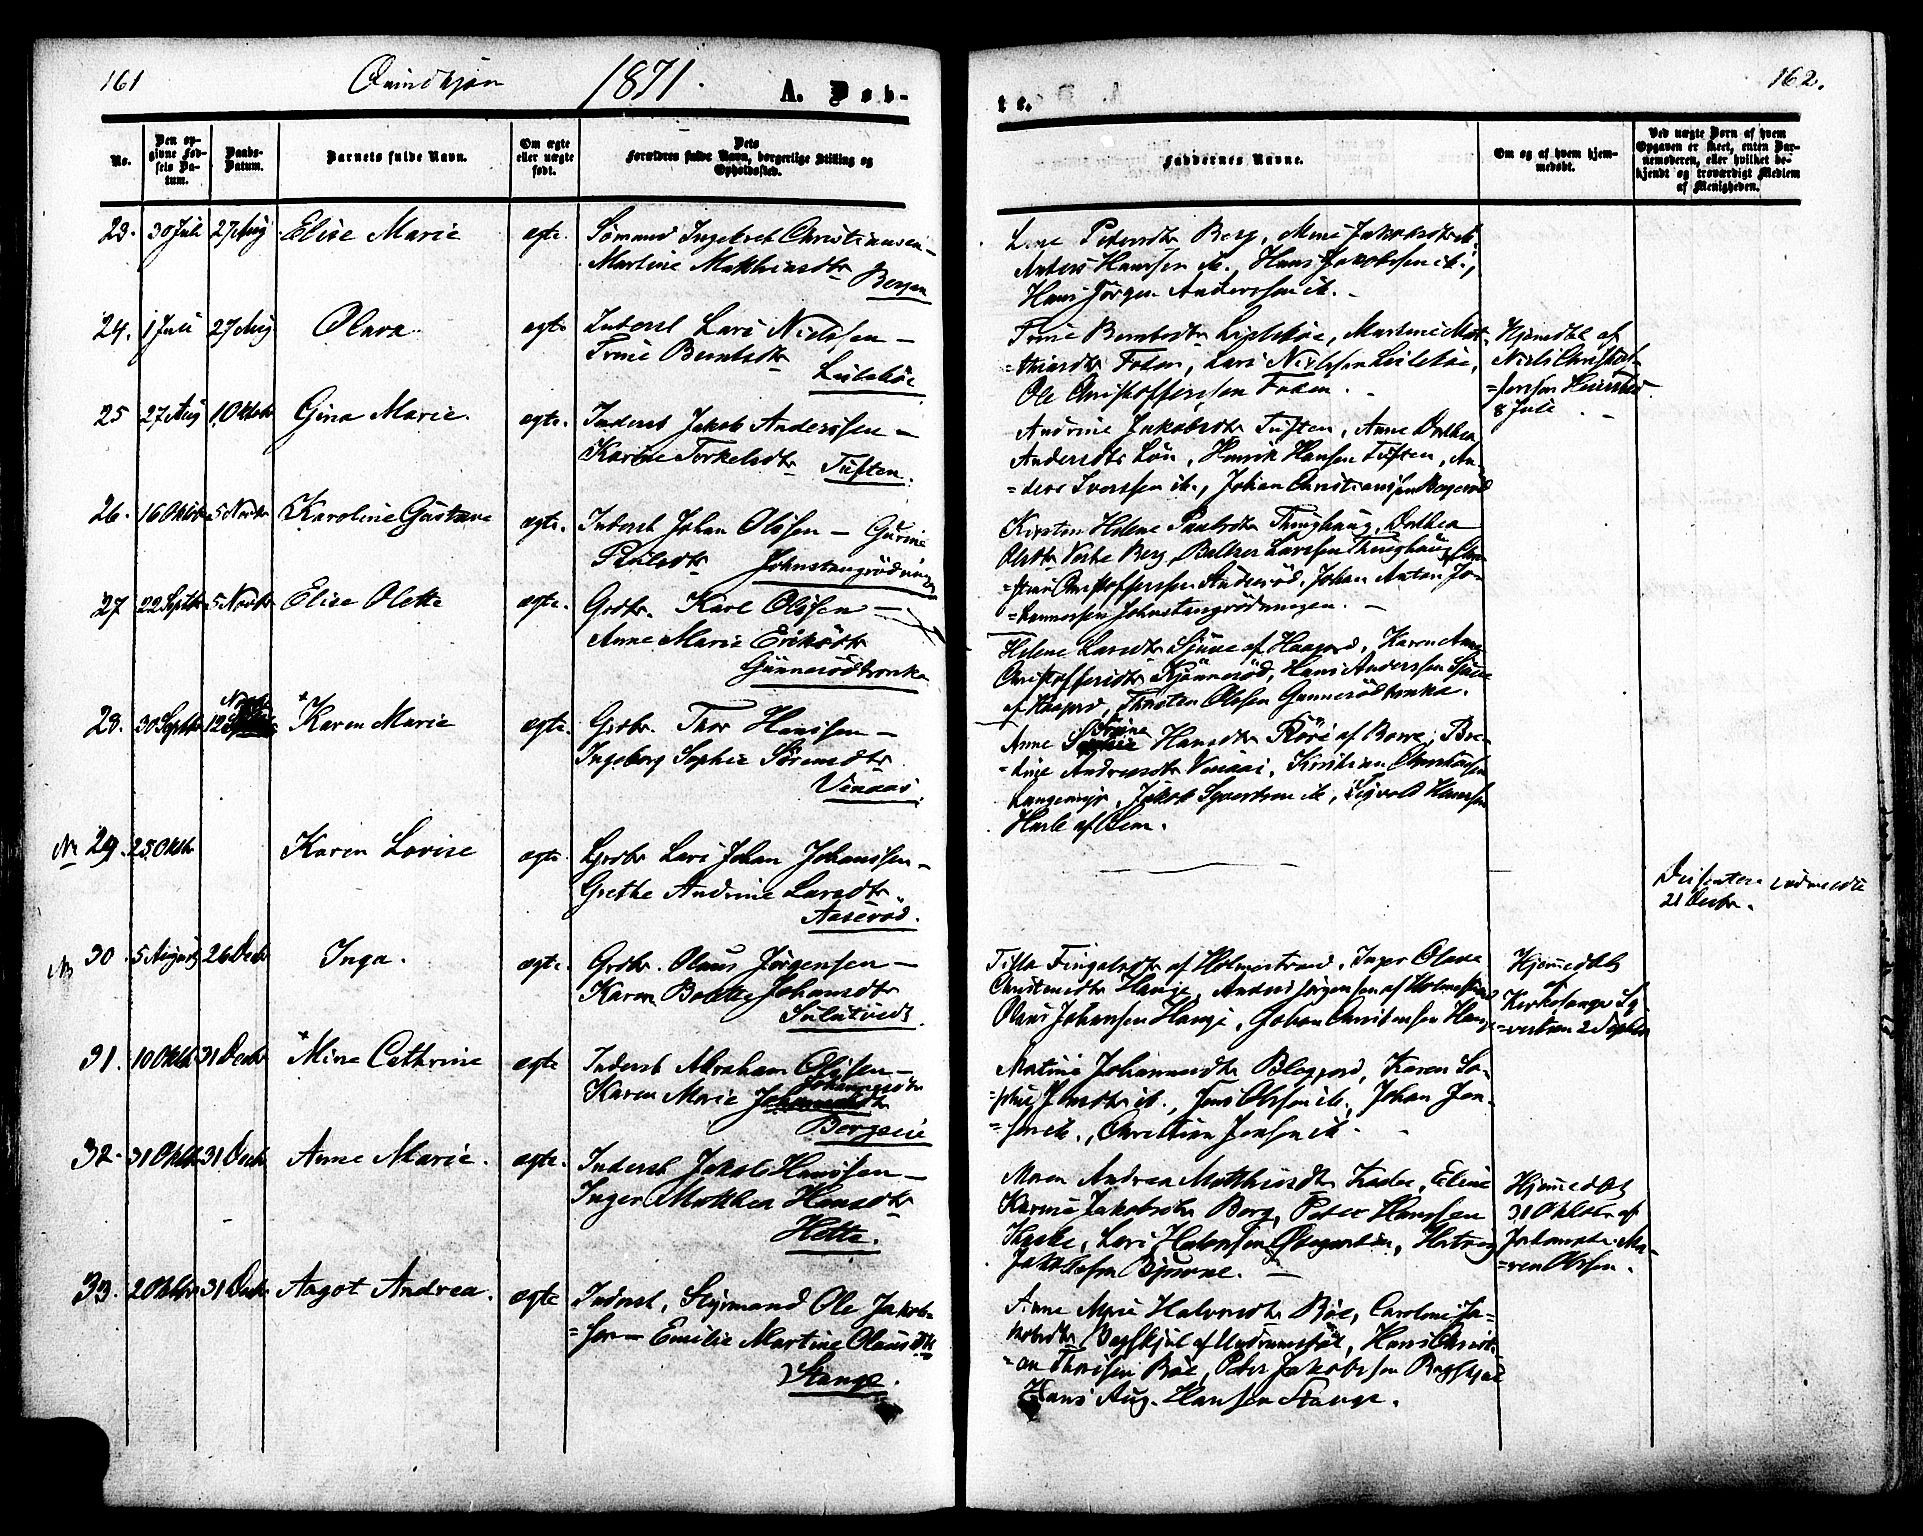 161
Qvindkjøn
1871.
A. Døb-
No.
Den op-
givne Fød-
sels Da-
tum.
Daabs-
Datum.
Barnets fulde Navn.
Om ægte
eller uægte
født.
Dets
Forældres fulde Navn, borgerlige Stilling og
Opholdssted.
23.
30 Juli
27 Aug
Elise Marie
ægte.
Sømand Ingebret Christiansen —
Martine Mathiasdtr
Bergan
24.
1 Juli
27 Aug
Olava
ægte
Inderst Lars Nielssen —
Trine Berntsdtr
25
27 Aug
1 Oktobr
Gina Marie.
ægte.
Inderst Jakob Anderssen —
Karine Torkelsdtr
Tuften.
26.
16 Oktbr
5 Novbr
Karoline Gustava
ægte.
Inderst Johan Olssen — Gurine
Paulsdtr
Johnstangrødningen
27
22 Septbr
5 Novbr
Elise Olette
ægte.
Grdbr. Karl Olssen —
Anne Marie Eriksdtr
Gunnerødbronka
28.
30 Septbr
12 Novbr
Karen Marie
ægte.
Grdbr. Thor Hanssen —
Ingeborg Sophie Sørensdtr
Vinaas.
29.
25 Oktbr
Karen Lovise
ægte.
Grdbr Lars Johan Johanssen —
Grethe Andrine Larsdtr.
Aaserød.
30
5 August
26 Decbr
Inga.
ægte.
Grdbr. Olaus Jørgensen —
Karen Bolette Johansdtr
31.
10 Oktbr
31 Decbr
Mina Cathrine
ægte
Inderst Abraham Olssen —
Karen Marie Johannesdtr
32.
31 Oktbr
31 Decbr
Anne Marie.
ægte.
Inderst Jakob Hanssen —
Inger Mathea Hansdtr
Hette.
33.
2 Oktbr
31 Decbr
Aagot Andrea.
ægte
Inderst, Styrmand Ole Jakob-
=sen — Emilie Martine Olausdtr
Stange.
162.
te.
Faddernes Navne.
Om og af hvem hjem-
medøbt.
Ved uægte Børn af hvem
Opgaven er skeet, enten Bar-
nemoderen, eller hvilket be-
kjendt og troværdigt Medlem
af Menigheden.
Lene Petersdtr Berg, Mina Jakobsdtr ib.
Anders Hanssen ib., Hans Jakobssen ib.,
Hans Jørgen Anderssen ib. —
Trine Berntsdtr, Martine Mat-
=thiasdtr Foden, Lars Nielssen
Ole Christofferssen Foden. —
Hjemdøbt af
Niels Christof-
=fersen
8 Juli
Andrine Jakobsdtr Tuften, Anne Dorthea
Andersdtr Løn, Henrik Hansen Tuften, An-
=ders Iverssen ib., Johan Christianssen Bergerød
Kirstin Helene Paulsdtr Thinghaug, Dorthea
Olsdtr Vestre Berg, Baltzer Larssen Thinghaug, Chri-
=stian Christofferssen Anderød, Johan Anton Jo-
=hannessen Johnstangrødningen. —
Helene Larsdtr Sjuve af Haagerd, Karen Anne
Christoffersdtr Kjønnerød, Hans Anderssen Sjuve
af Haagerd, Thorsten Olssen Gunnerødbronka.
Anne Trine Hansdtr Røri af Borre, Bre-
=dine Andreasdtr Vinaas, Kristian Christianssen
Langemyr, Jakob Syvertsen ib., Sigvald Hanssen
af Sem.
Dissentere indmeldte
21 Decbr.
af Holmestrand, Inger Olava
Christensdtr Hauge, Anders Jørgensen af Holmestrand
Olaus Johansen Hauge, Johan Christensen Hauge
Hjemmedøbt
af
Kirkesanger Sy-
=vertsen 2 Septbr
Matine Johannesdtr, Karen So-
=phie Jensdtr ib., Jens Olssen ib., Johan Jen-
=sen ib., Christian Jensen ib.
Maren Andrea Matthiasdtr, Eline
Karine Jakobsdtr Berg, Peter Hanssen
Jakobssen Bjuvne. —
Hjemmedøbt
31 Oktober af
Jordemoder Ma-
=ren Olssen.
Anne Marie Halvorsdtr Bøe, Caroline Ja-
=kobsdtr, Hans Christi-
=an Thorssen Bøe, Peter Jakobssen
Hans Aug. Hanssen Stange.